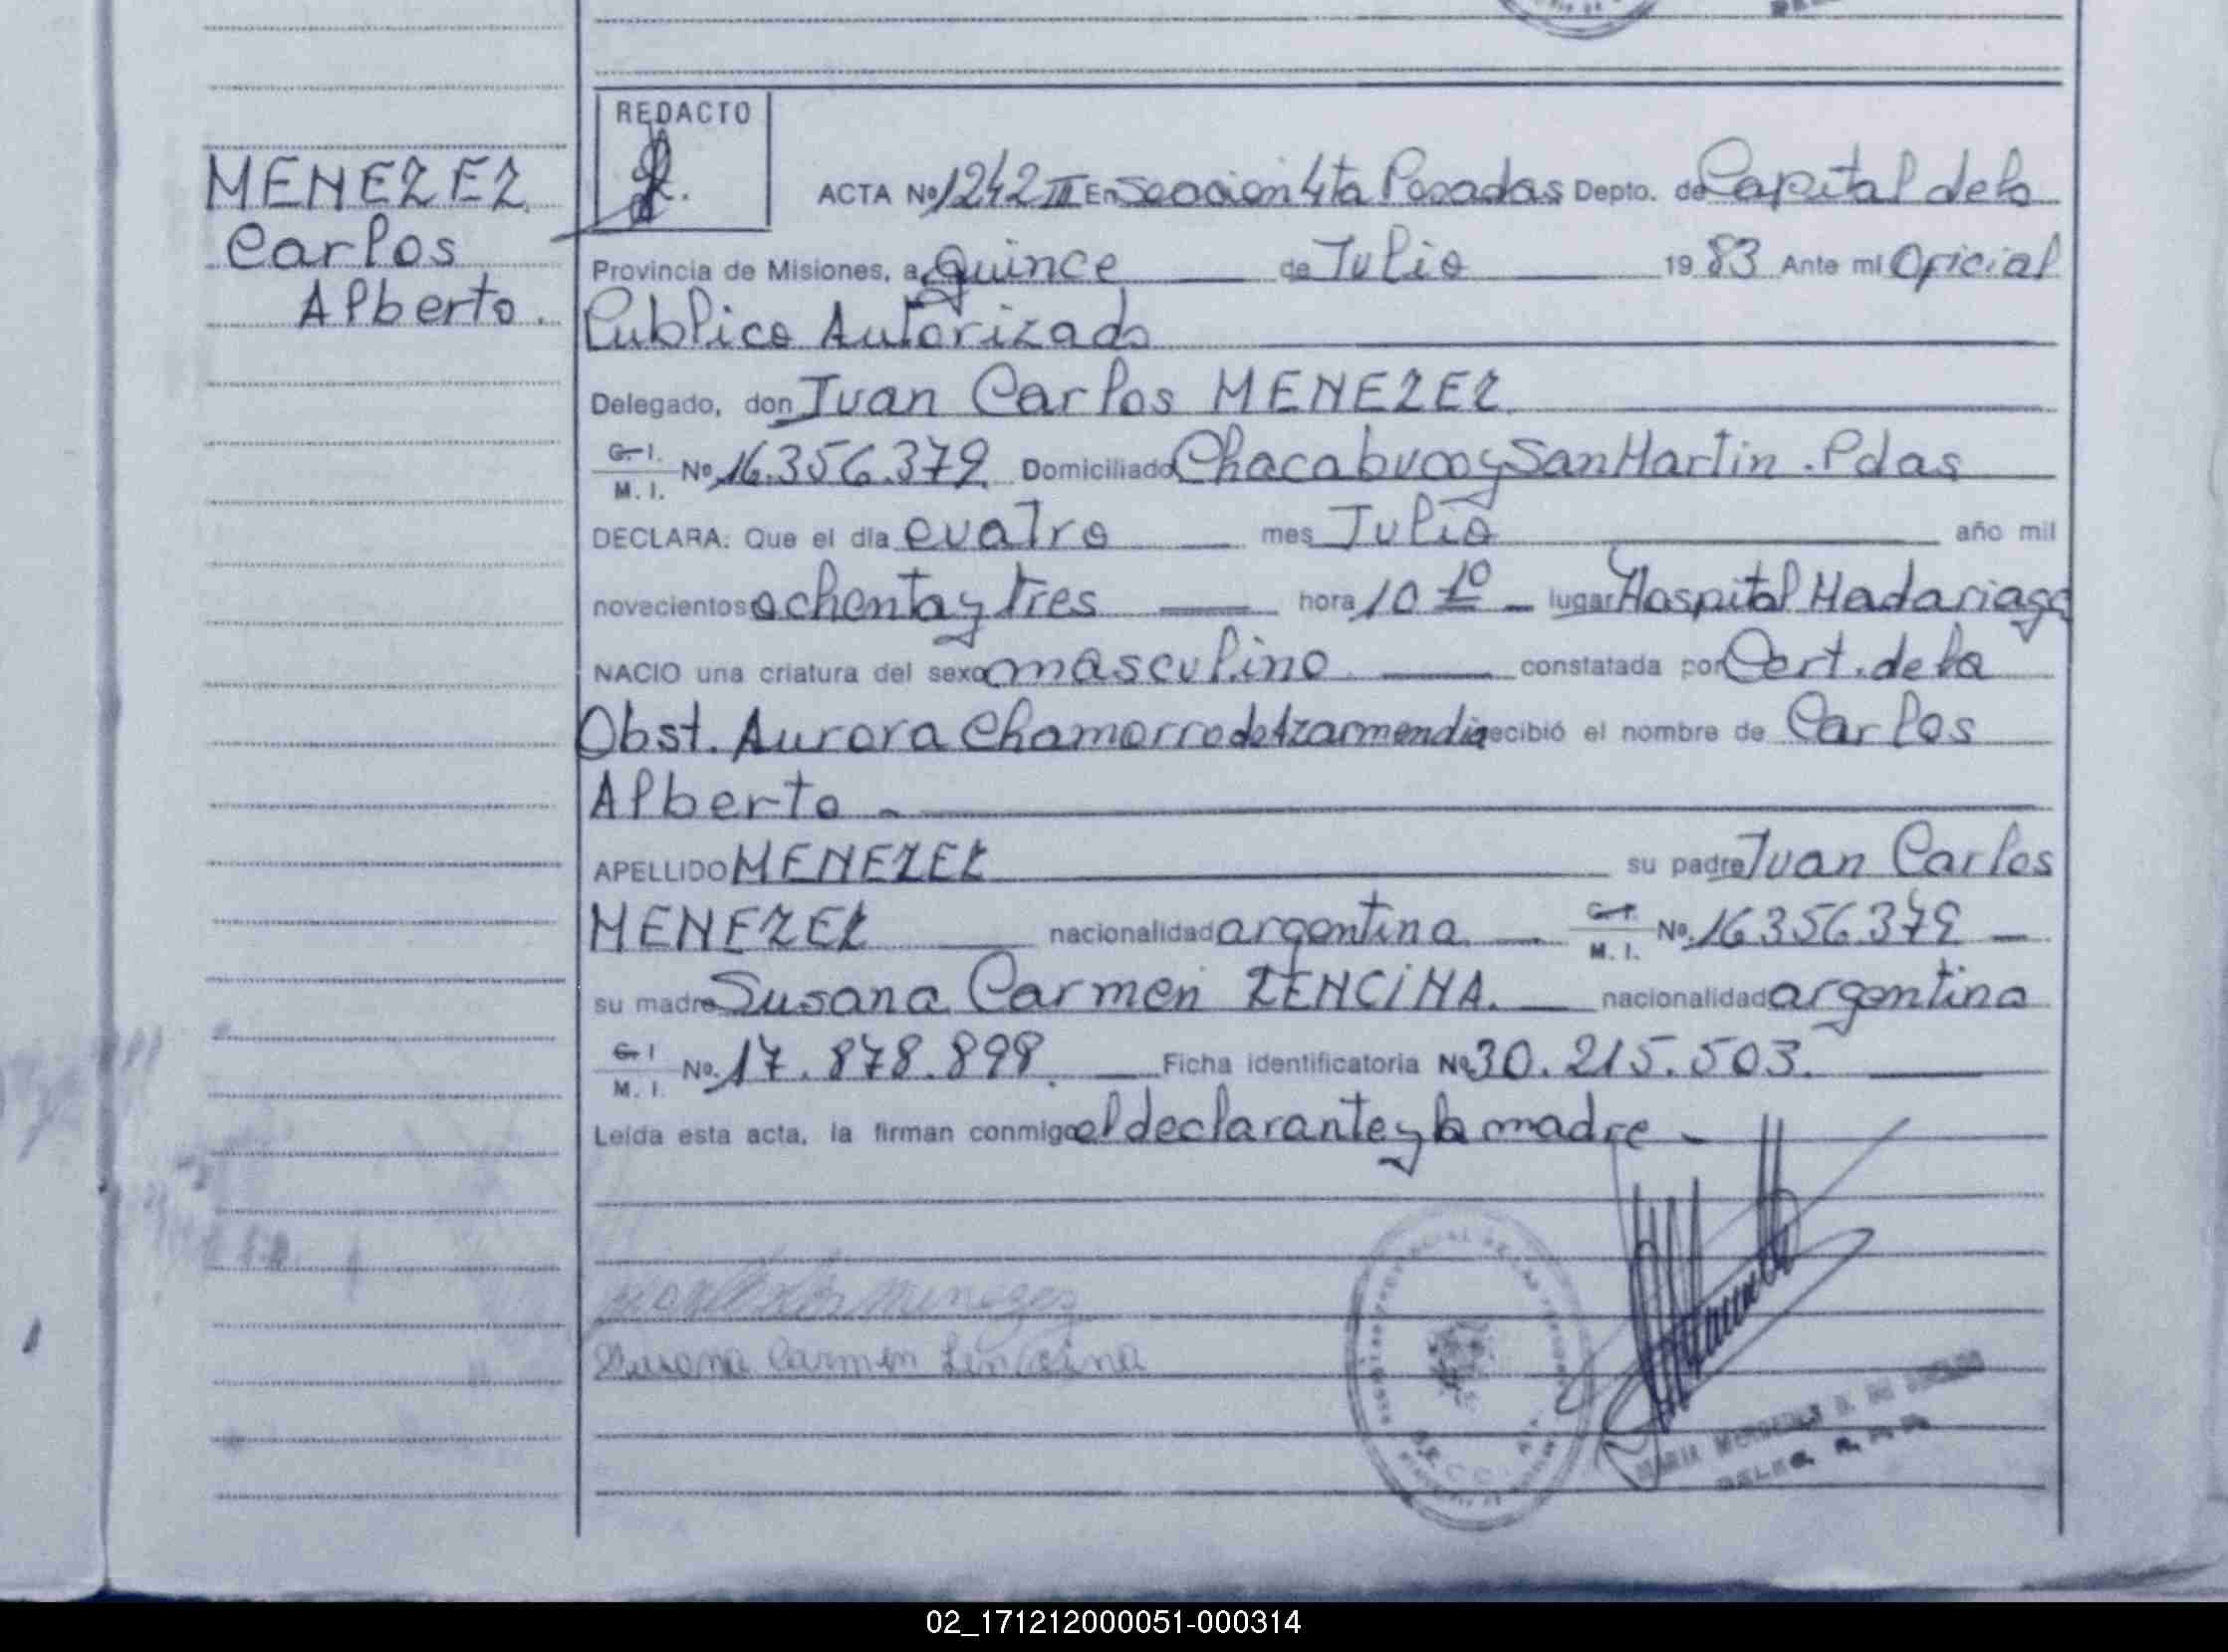 REDACTO
MENEZEZ
Carlos
Alberto.
ACTA Nº 1242 III En Seccion 4ta Posadas Depto. de Capital de la
Provincia de Misiones, a quince de Julio 1983 Ante mi Oficial
Publico Autorizado
Delegado, don Juan Carlos MENEZEZ
C. I. Nº 16.356.379 Domiciliado Chacabuco y San Martin. Pdas
M. I.
DECLARA: Que el día cuatro mes Julio año mil
novecientos ochenta y tres hora 10 10 lugar Hospital Madariaga
NACIO una criatura del sexo masculino constatada por Cert. de la
Obst. Aurora Chamorro de Azarmendia recibió el nombre de Carlos
Alberto
APELLIDO MENEZEZ su padre Juan Carlos
MENEZEZ nacionalidad argentina C. I. Nº 16356.379
M. I.
su madre Susana Carmen ZENCINA. nacionalidad argentina
C. I. Nº 17.878.898. Ficha identificatoria Nº 30.215.503.
M. I.
Leída esta acta, la firman conmigo el declarante y la madre
Susana Carmen
02_171212000051-000314